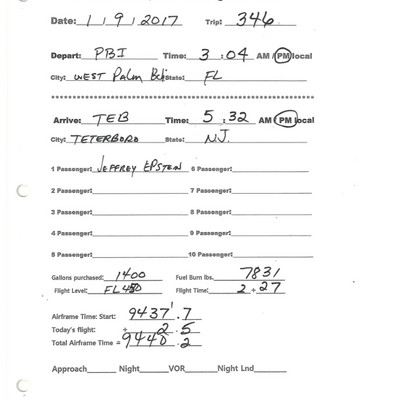 Date: 1/9/2017 Trip: 346
Depart: PBI Time: 3:04 AM PM local
City: WEST Palm Bch State: FL
****************************************************
Arrive: TEB Time: 5:32 AM PM local
City: TETERBORO State: NJ.
1 Passenger: JEFFREY EPSTEIN 6 Passenger:
2 Passenger: 7 Passenger:
3 Passenger: 8 Passenger:
4 Passenger: 9 Passenger:
5 Passenger: 10 Passenger:
Gallons purchased: 1400 Fuel Burn lbs. 7831
Flight Level: FL450 Flight Time: 2 + 27
Airframe Time: Start: 9437.7
Today's flight: + 2.5
Total Airframe Time = 9440.2
Approach Night VOR Night Lnd